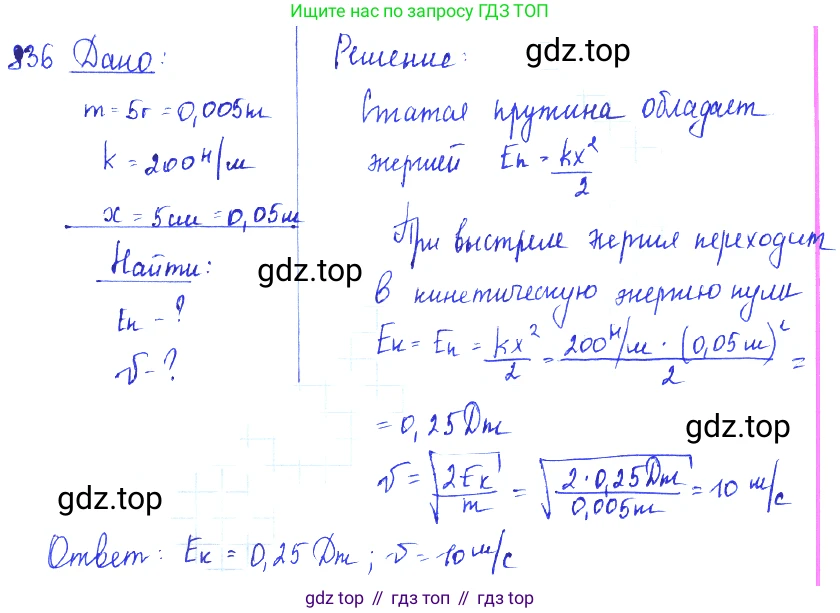 Ищите нас по запросу ГДЗ ТОП
836 Дано:
m = 5г = 0,005кг
k = 200 Н/м
x = 5см = 0,05м
Найти:
Eк - ?
v - ?
Решение:
gdz.top
Сжатая пружина обладает
энергией Eп = kx²/2
При выстреле энергия переходит
в кинетическую энергию пули
gdz.top
Eк = Eп = kx²/2 = 200 Н/м · (0,05 м)²/2 =
= 0,25 Дж
gdz.top
v = √(2Eк/m) = √(2·0,25Дж/0,005кг) = 10 м/с
gdz.top
Ответ: Eк = 0,25 Дж; v = 10 м/с
gdz top // гдз топ // gdz.top